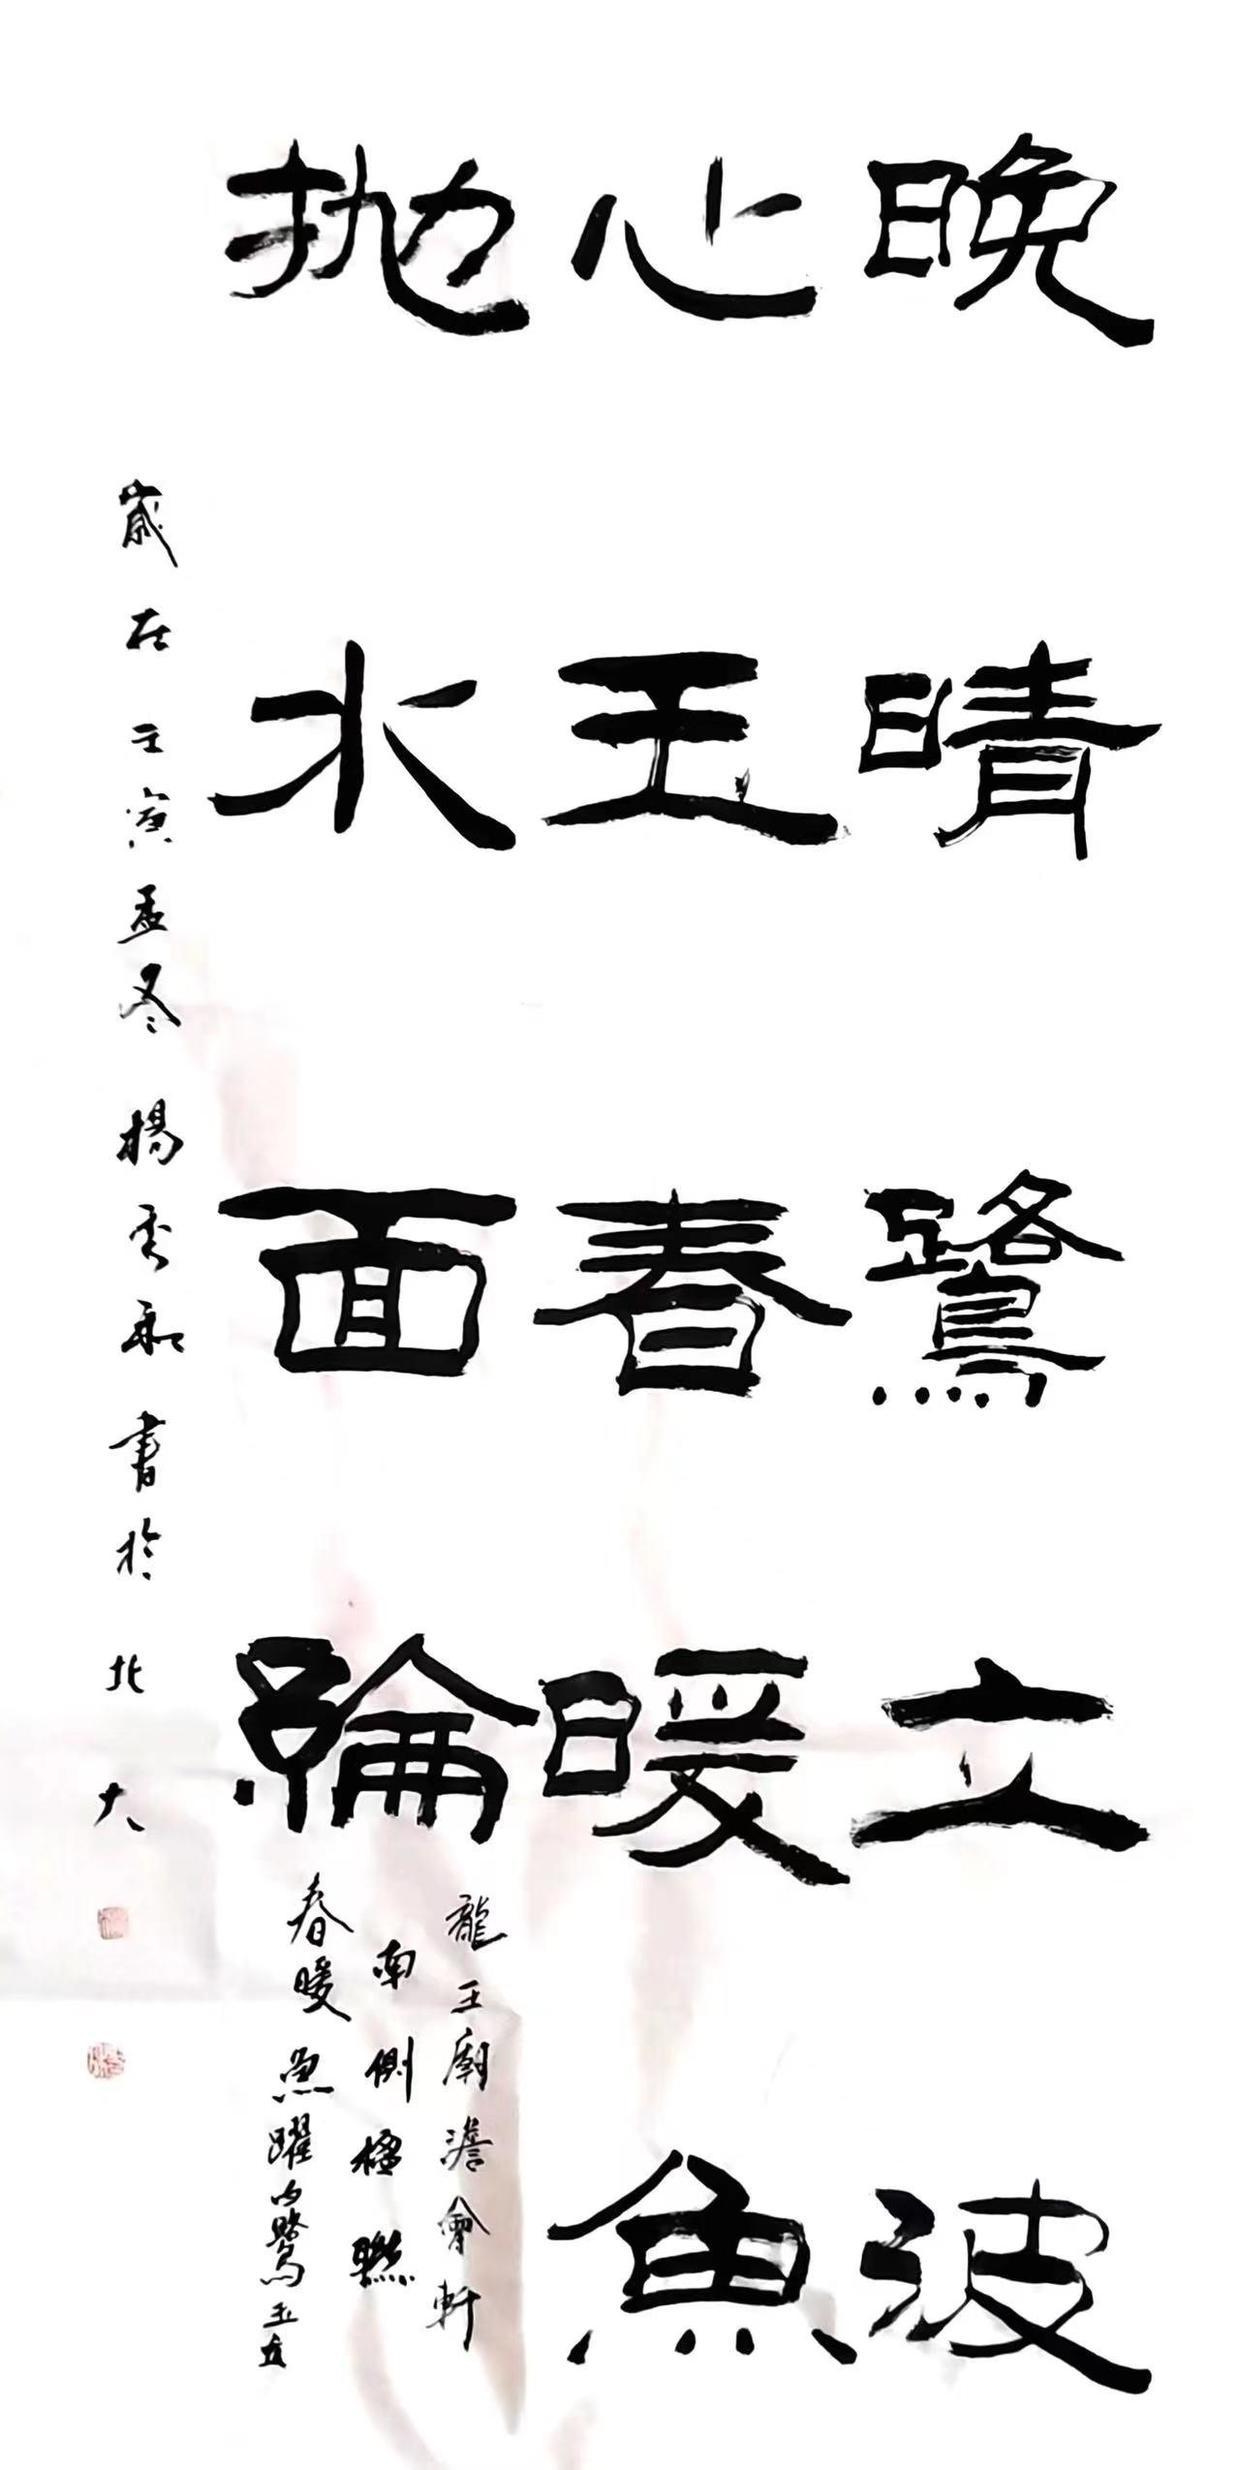 晚晴鷺立波
心玉春暖魚
抛水面綸
龍王廟澹會軒
南側楹聯
春暖魚躍白鷺玉立
歲在壬寅孟冬楊秀和書於北大